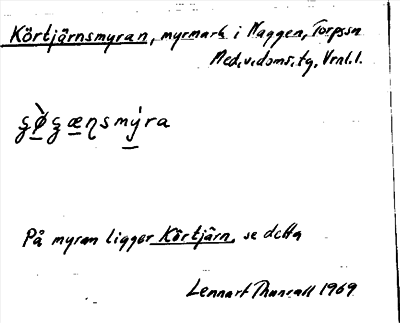 Körtjärnsmyran, myrmark i Naggen, Torpssn
Med. v. doms. tg. Vrnl. l.
ʂø̀ʂæɳsmýra
På myran ligger Körtjärn, se detta
Lennart Thunvall 1969